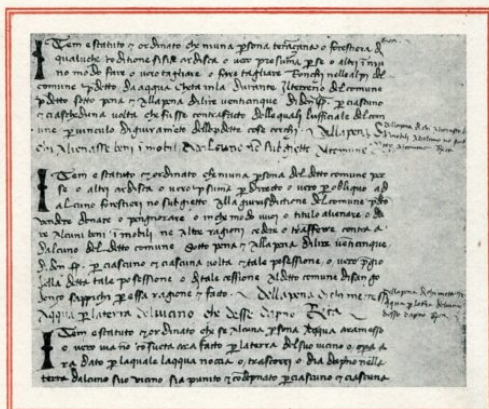 Item e statuto & ordinato che niuna psona terraçana o forestiera di
qualuche conditione si sia ardisca o vero presuma p se o altri i niu
no modo fare o vero tagliare o fare tagliare Ronchi nelle alpi del
comune pdetto da acqua cheta in la durante il terreno del comune
pdetto sotto pena & alla pena di lire venticinque di dn fp. p ciascuno
& ciascheduna volta che fusse contrafacto delle quali l'ufficiale del com
une p vinculo di giuramēto delle pdette cose cerchi. Della pena di
chi alienasse beni imobili Ad Comune nō subgietto Al comune
Item e statuto & ordinato che niuna psona del detto comune per
se o altri ardisca o vero psuma p directo o vero p obliquo ad
alcuno forestieri no subgietto alla gurisditione del comune pdto
vendere donare o peignorare o in che modo vuoi o titulo alienare o da
re alcuni beni imobili ne altre ragioni cedere o trasferire contra a
dalcuno del detto comune sotto pena & alla pena di lire venticinque
di den fp. p ciascuno & ciascuna volta & tale possessione o vero pgio
alla detta tale possessione o di tale cessione al detto comune di sangodenço
sapichi p essa ragione & facto. Della pena di chi mettesse
Acqua p la terra del vicino che desse dapno Rica
Item e statuto & ordinato che se alcuna psona Acqua a ramesso
o vero via nō cōsueta ara facto p la terra del suo vicino o opa a
ra dato p la quale lacqua noccia o trascorri o dia dapno nella
terra dalcuno suo vicino sia punito & cōdēpnato p ciascuno & ciascuna